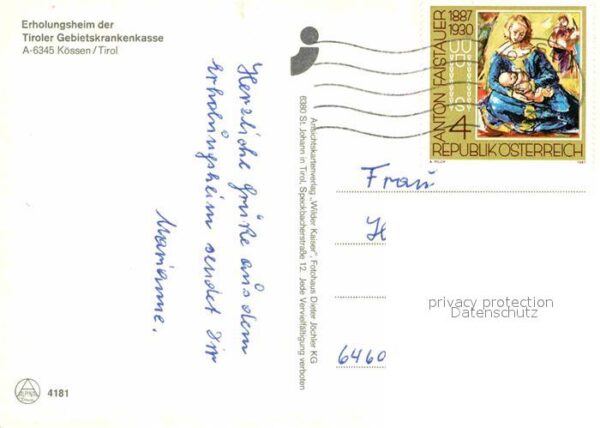 Erholungsheim der
Tiroler Gebietskrankenkasse
A-6345 Kössen/Tirol
Herzliche Grüße aus dem
Erholungsheim sendet Dir
Marianne.
4181
Ansichtskartenverlag „Wilder Kaiser", Fotohaus Dieter Jöchler KG
6380 St. Johann in Tirol, Speckbacherstraße 12. Jede Vervielfältigung verboten
ANTON FAISTAUER
1887
1930
4 S
REPUBLIK ÖSTERREICH
1987
Frau
H
6460
privacy protection
Datenschutz